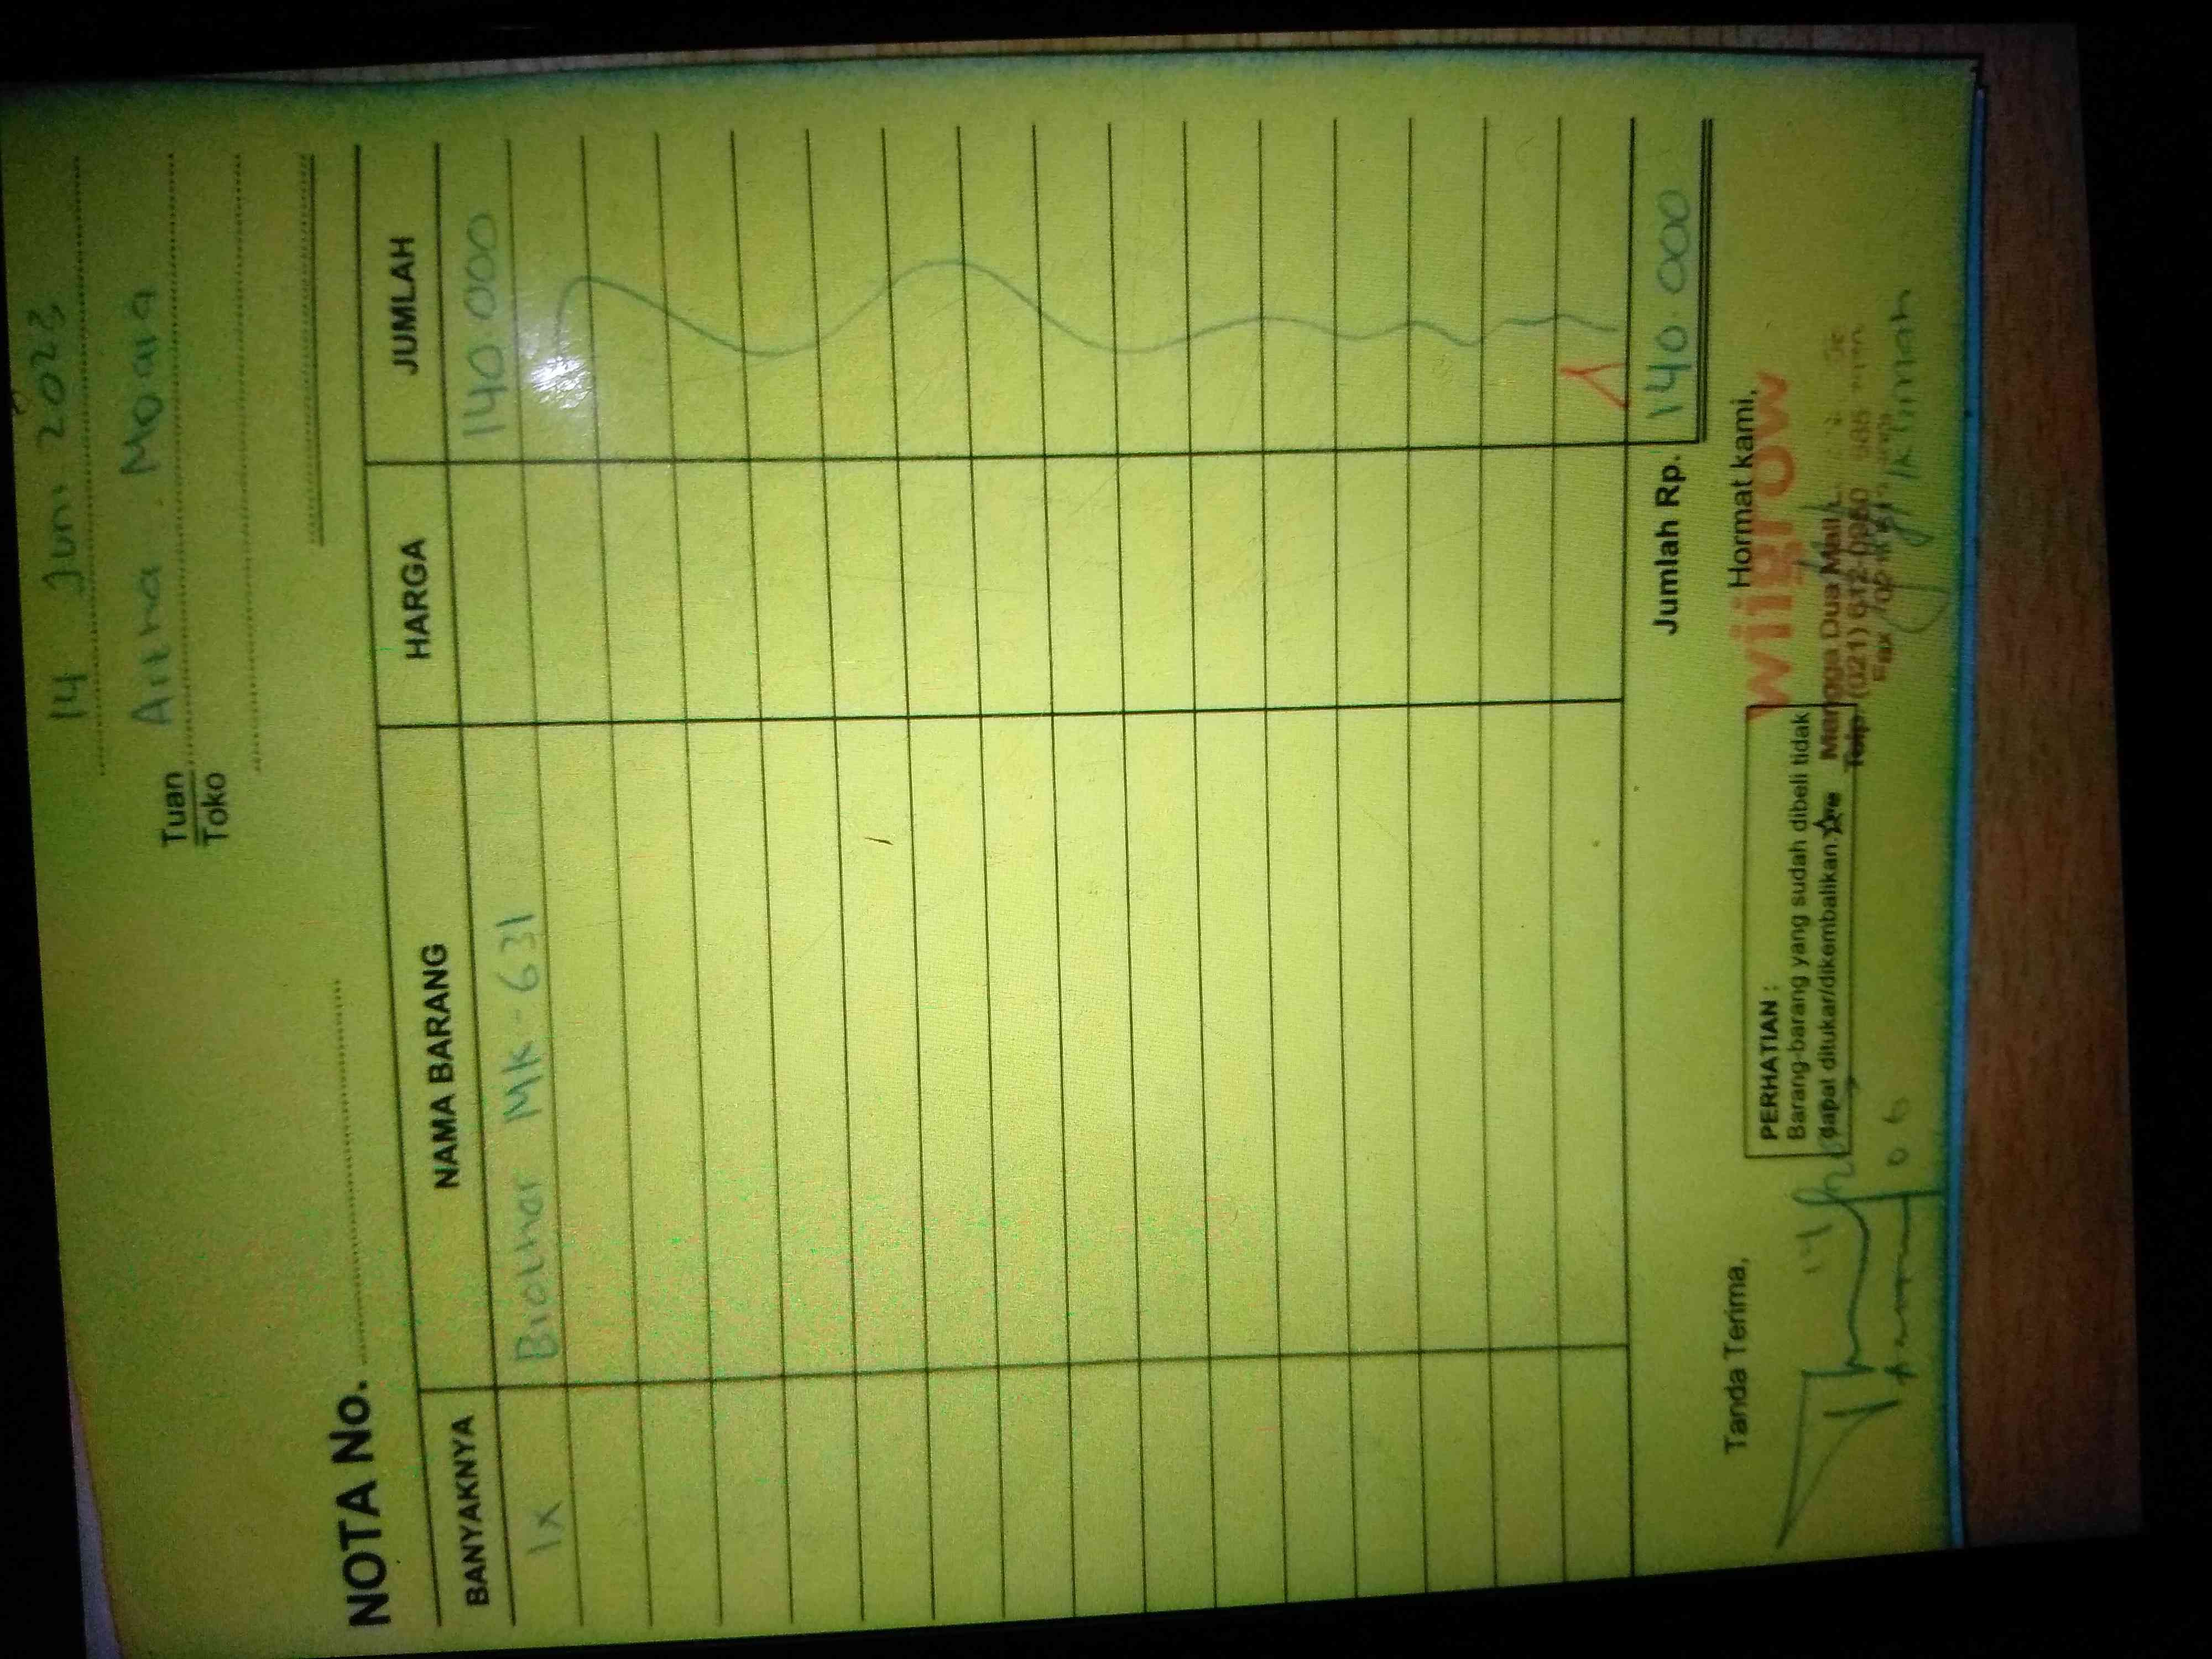 14 Juni 2023
Tuan
Toko
NOTA No.
BANYAKNYA NAMA BARANG HARGA JUMLAH
1x Brother MK-631 140.000
Jumlah Rp. 140.000
Tanda Terima,
Hormat kami,
PERHATIAN :
Barang-barang yang sudah dibeli tidak
dapat ditukar/dikembalikan
wiigrow
Mangga Dua Mall
Telp. (021) 612
Fax